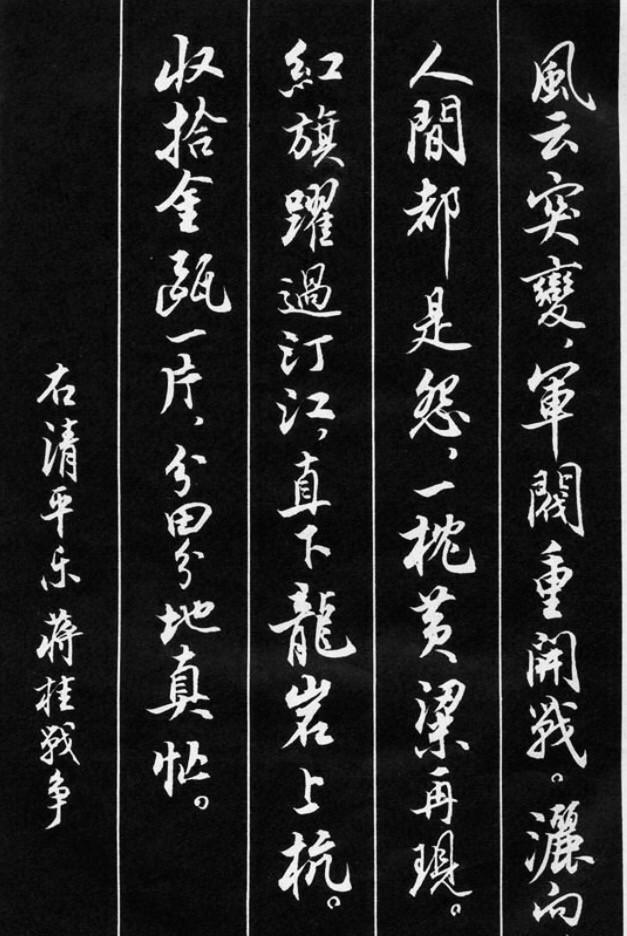 風云突變、軍閥重開戰。灑向
人間都是怨，一枕黄梁再現。
紅旗躍過汀江，直下龍岩上杭。
收拾金甌一片、分田分地真忙。
右清平乐蒋桂戰争